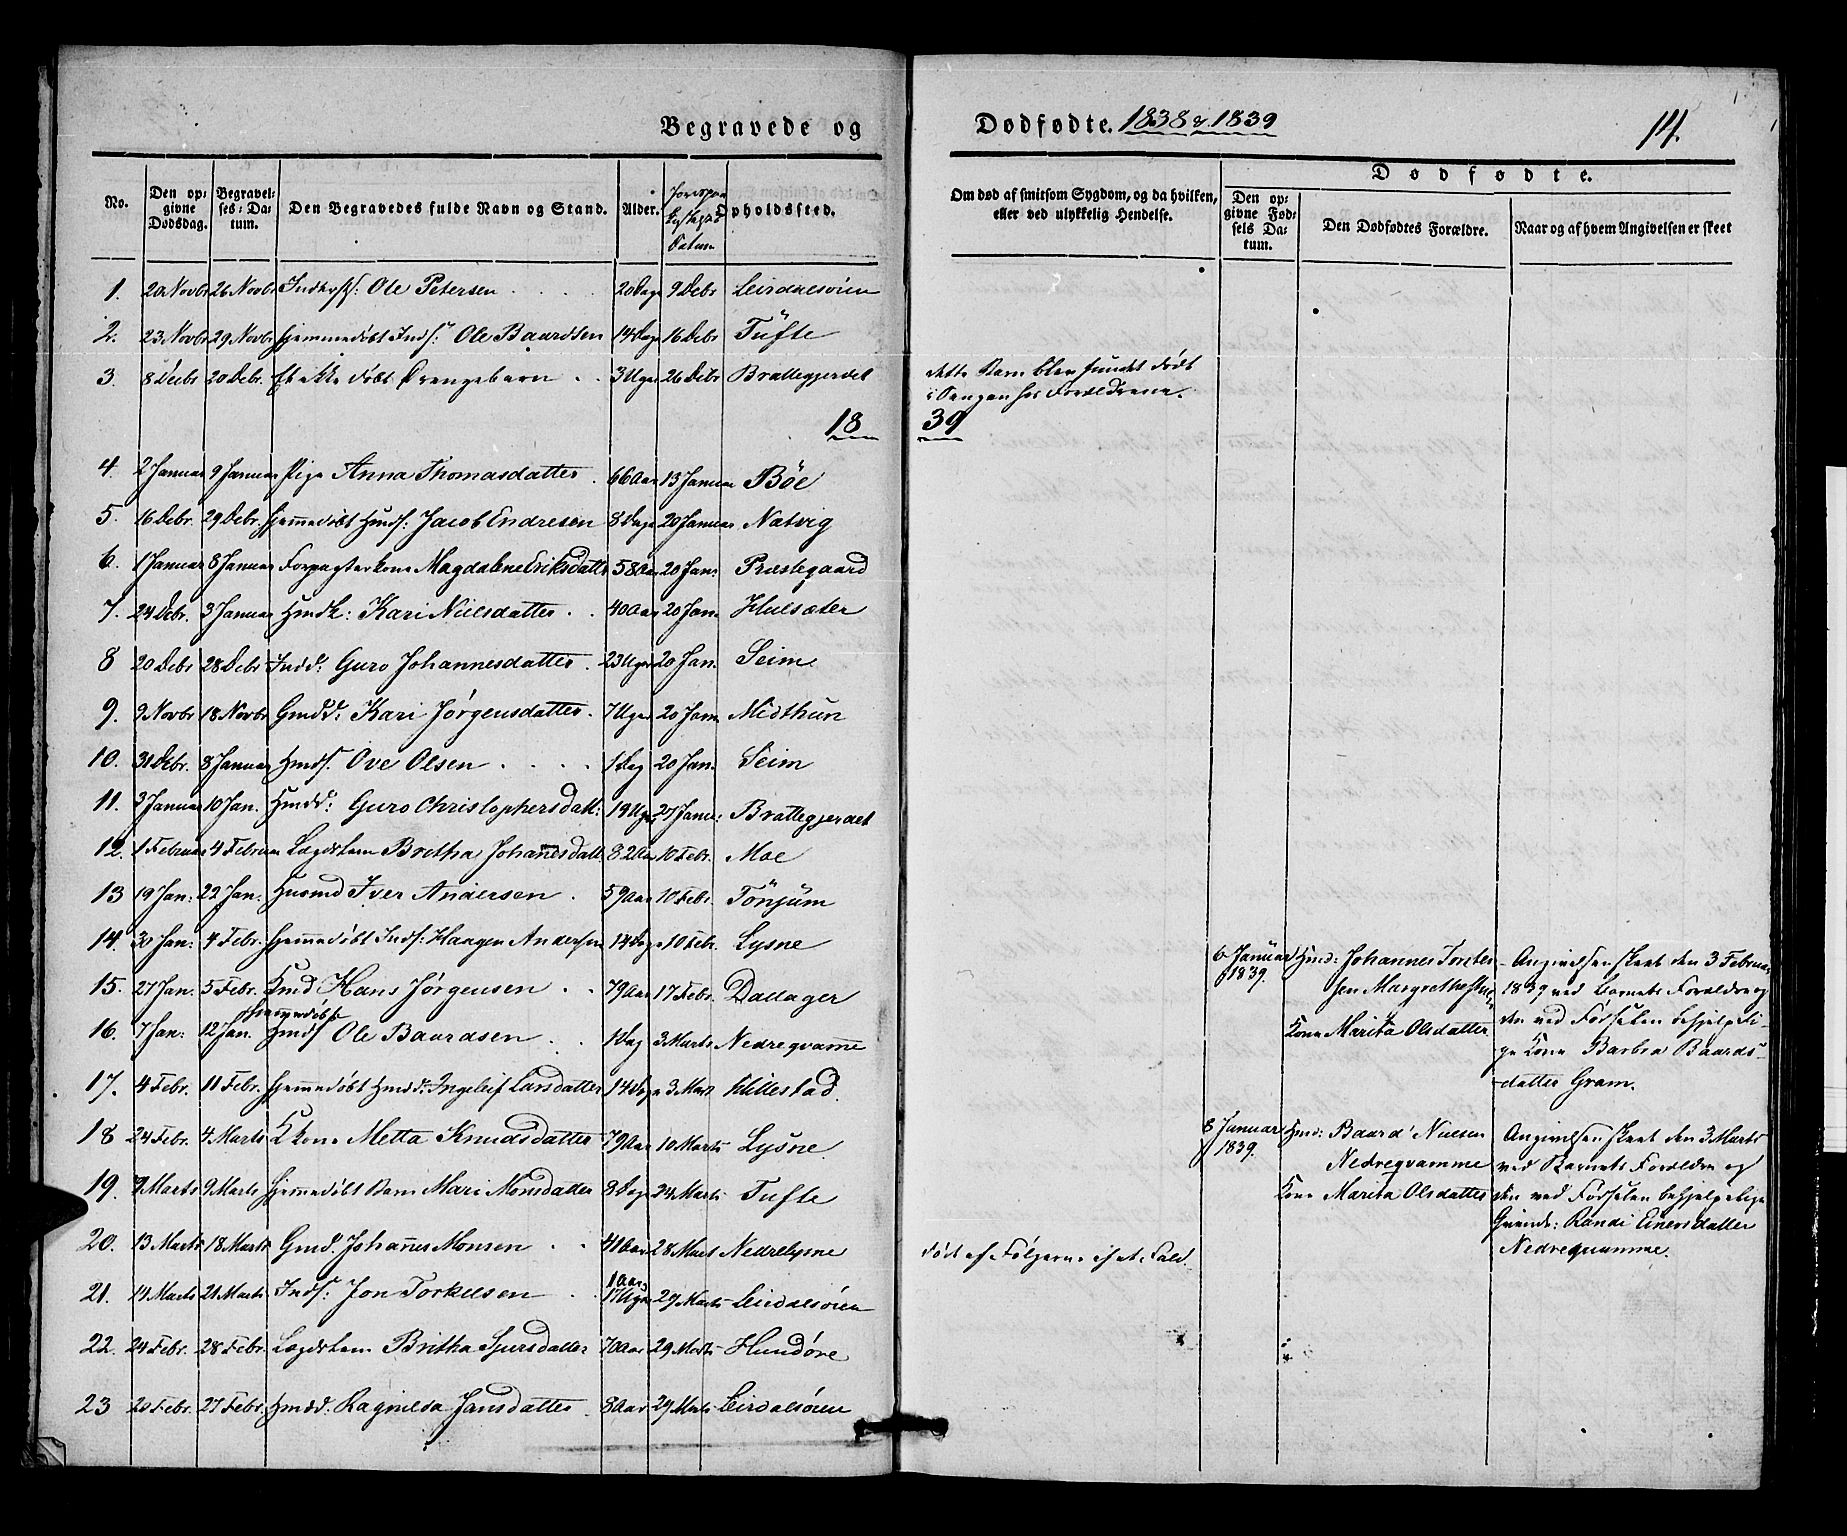 Begravede og Dødfødte. 1838 & 1839
14.
No. Den opgivne Dødsdag. Begravelses-Datum. Den Begravedes fulde Navn og Stand. Alder. Datum Opholdssted. Om død af smitsom Sygdom, og da hvilken, eller ved ulykkelig Hendelse.
Dødfødte.
Den opgivne Fødsels Datum. Den Dødfødtes Forældre. Naar og af hvem Angivelsen er skeet
1. 20 Novbr 26 Novbr Ole Petersen 20 Dage 9 Debr Leirdalsøren
2. 23 Novbr 29 Novbr hjemmedøbt Inds: Ole Baardsen 14 Dage 16 Debr Tufte
3. 8 Decbr 20 Debr. Et ikke døbt Drengebarn 3 Uger 26 Debr Brattegjerdet dette Barn blev fundet dødt
i Sengen hos Forældrene.
1839
4. 2 Januar 9 Januar Pige Anna Thomasdatter 66 Aar 13 Januar Bøe
5. 16 Debr. 29 Debr. hjemmedøbt Hmds: Jacob Endresen 8 Dage 20 Januar Natvig
6. 1 Januar 8 Januar Forpagterkone Magdalene Eriksdatter 58 Aar 20 Jan: Præstegaard
7. 24 Debr. 3 Januar Hmdk: Kari Nielsdatter 40 Aar 20 Jan. Hulsæter
8 20 Debr 28 Debr Indd: Guro Johannesdatter 23 Uger 20 Jan. Seim
9. 9 Novbr 18 Novbr Gmdd: Kari Jørgensdatter 7 Uger 20 Jan. Midthun
10. 31 Debr. 8 Januar Hmds. Ove Olsen 1 Dag 20 Jan. Seim
11. 3 Januar 10 Jan. Hmdd: Guro Christophersdatt: 19 Uger 27 Janr: Brattegjerdet
12. 1 Februar 4 Februar Lægdslem Britha Johanesdatt 82 Aar 10 Febr. Moe
13 19 Jan: 22 Jan. Husmd Iver Andersen 59 Aar 10 Febr. Tønjum
14. 30 Jan: 4 Febr. hjemedøbt Inds: Haagen Andersen 14 Dage 10 Febr. Lysne
15. 27 Jan. 5 Febr. Kmd Hans Jørgensen 79 Aar 17 Febr. Dallager
16. 7 Jan: 12 Jan. hjemedøbt Hmds Ole Baardsen 1 Dag 3 Marts Nedreqvamme
17. 4 Febr. 11 Febr. hjemedøbt Hmdd: Ingelief Larsdatter 14 Dage 3 Mart Hillestad
18 24 Febr. 4 Marts Kkone Metta Knudsdatter 79 Aar 10 Marts Lysne
19. 7 Marts 9 Marts hjemedøbt Barn Mari Monsdatter 8 Dage 24 Marts Tufte
20. 13 Marts 18 Marts Gmd. Johanes Monsen 41 Aar 28 Mart Nedrelysne død af Følgerne af et Fald.
21. 14 Marts 21 Marts Inds: Jon Torkelsen 1 Aar 17 Uger 29 Marts Leirdalsøren
22. 24 Febr. 28 Febr. Lægdslem Britha Sjursdatter 70 Aar 29 Marts Hundøre
23 20 Febr. 27 Febr. Hmdd: Ragnilda Jansdatter 8 Aar 29 Marts Leirdalsøren
6 Januar 1839. Hmd: Johannes Torste
sen
Kone Marita Olsdatter
Angivelsen skeet den 3 Februar
1839 ved Barnets Forældre og
den ved Fødselen behjelpeli-
ge Kone Barbra Baards-
datter Gram.
8 Januar 1839. Hmd: Baard Nielsen
Nedreqvamme
Kone Marita Olsdatter
Angivelsen skeet den 3 Marts
ved Barnets Forældre og
den ved Fødselen behjelpelige
Randi Einersdatter
Nedreqvamme.